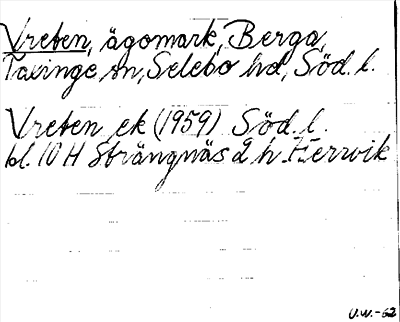 Vreten, ägomark, Berga,
Taxinge sn, Selebo hd, Söd. l.
Vreten ek (1959) Söd. l.
bl. 10 H Strängnäs 2 h Herrvik
U.W.-62